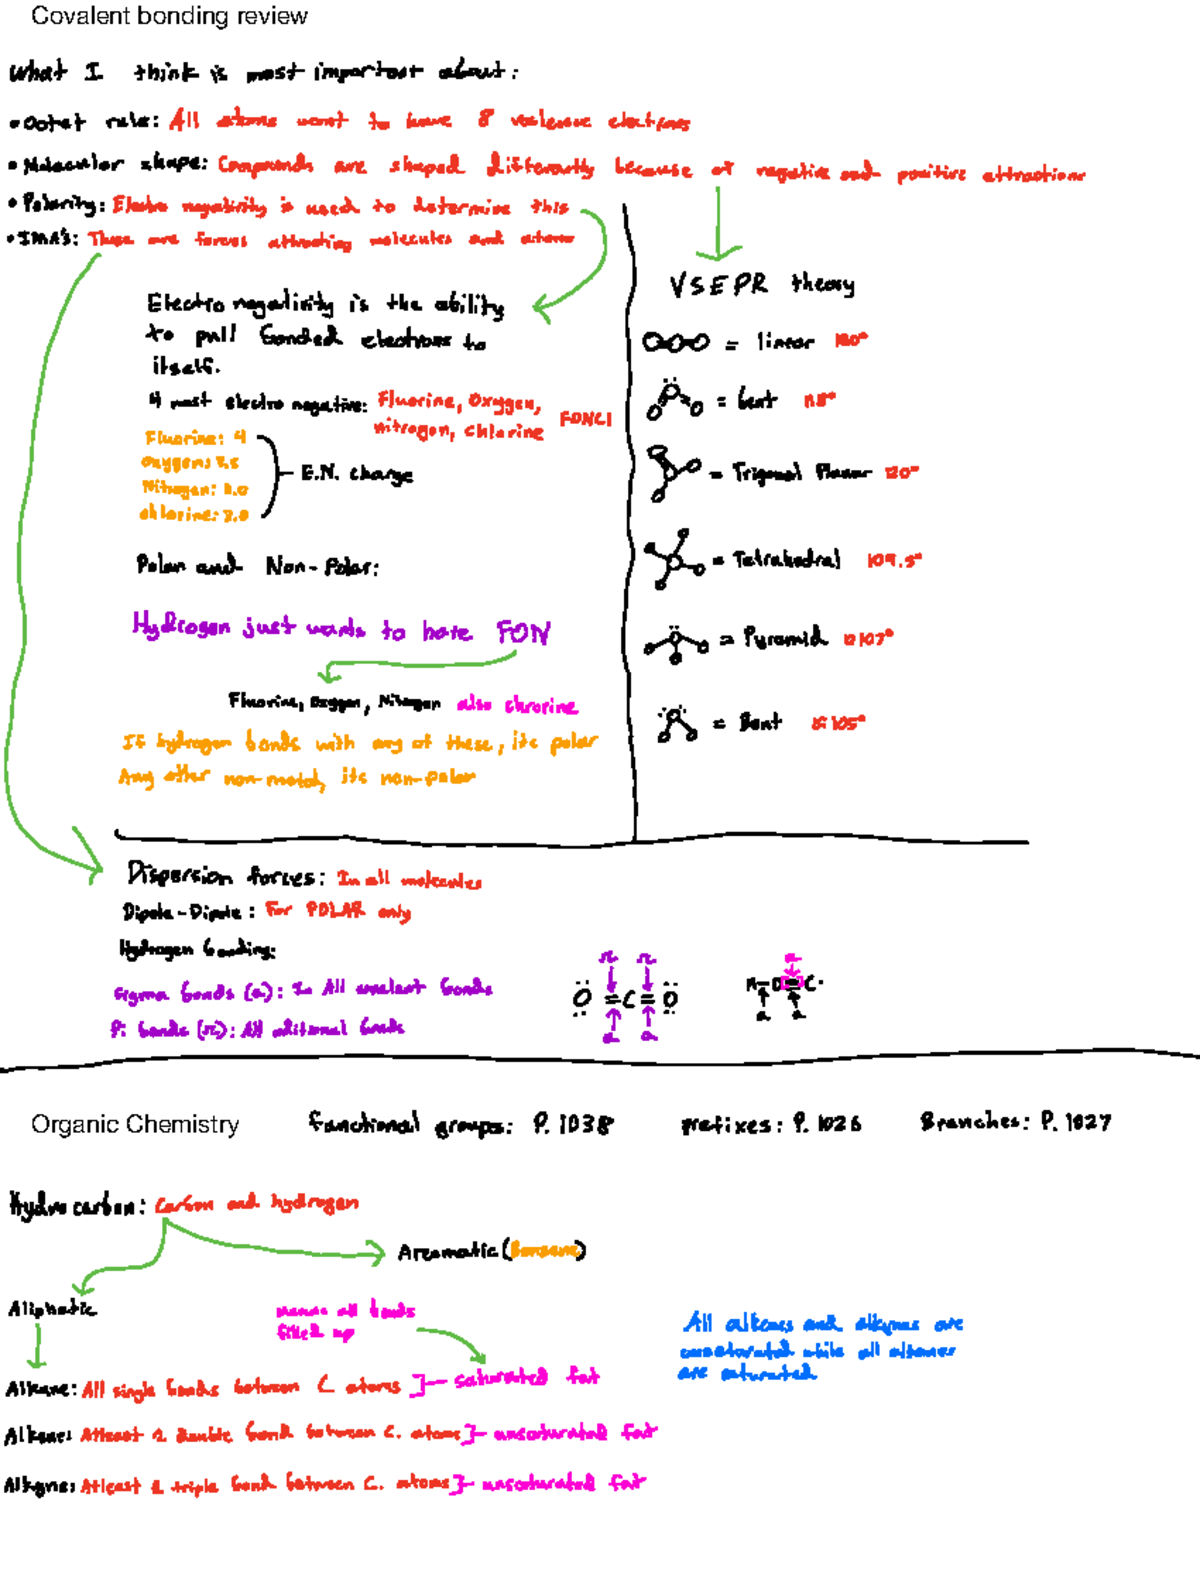 Covalent bonding review
What I think is most important about:
• Octet rule: All atoms want to have 8 valence electrons
• Molecular shape: Compounds are shaped differently because of negative and positive attractions
• Polarity: Electro negativity is used to determine this
• IMA's: These are forces attracting molecules and atoms
Electro negativity is the ability
to pull bonded electrons to
itself.
4 most electro negative: Fluorine, Oxygen,
nitrogen, chlorine FONCl
Fluorine: 4
Oxygen: 3.5
Nitrogen: 3.0
chlorine: 3.0
E.N. charge
Polar and Non-Polar:
Hydrogen just wants to have FON
Fluorine, Oxygen, Nitrogen also chrorine
If hydrogen bonds with any of these, its polar
Any other non-metal, its non-polar
VSEPR theory
= linear 180°
= bent 118°
= Trigonal Planar 120°
= Tetrahedral 109.5°
= Pyramid 107°
= Bent 105°
Dispersion forces: In all molecules
Dipole-Dipole: For POLAR only
Hydrogen bonding:
Sigma bonds (σ): In All covalent bonds
Pi bonds (π): All aditional bonds
π π
O = C = O
σ σ
Organic Chemistry functional groups: P. 1038 prefixes: P. 1026 Branches: P. 1027
Hydrocarbon: Carbon and hydrogen
Aromatic (Benzene)
Aliphatic
means all bonds
filled up
All alkenes and alkynes are
unsaturated while all alkanes
are saturated
Alkane: All single bonds between C atoms ]- saturated fat
Alkene: Atleast 1 double bond between C. atoms ]- unsaturated fat
Alkyne: Atleast 1 triple bond between C. atoms ]- unsaturated fat